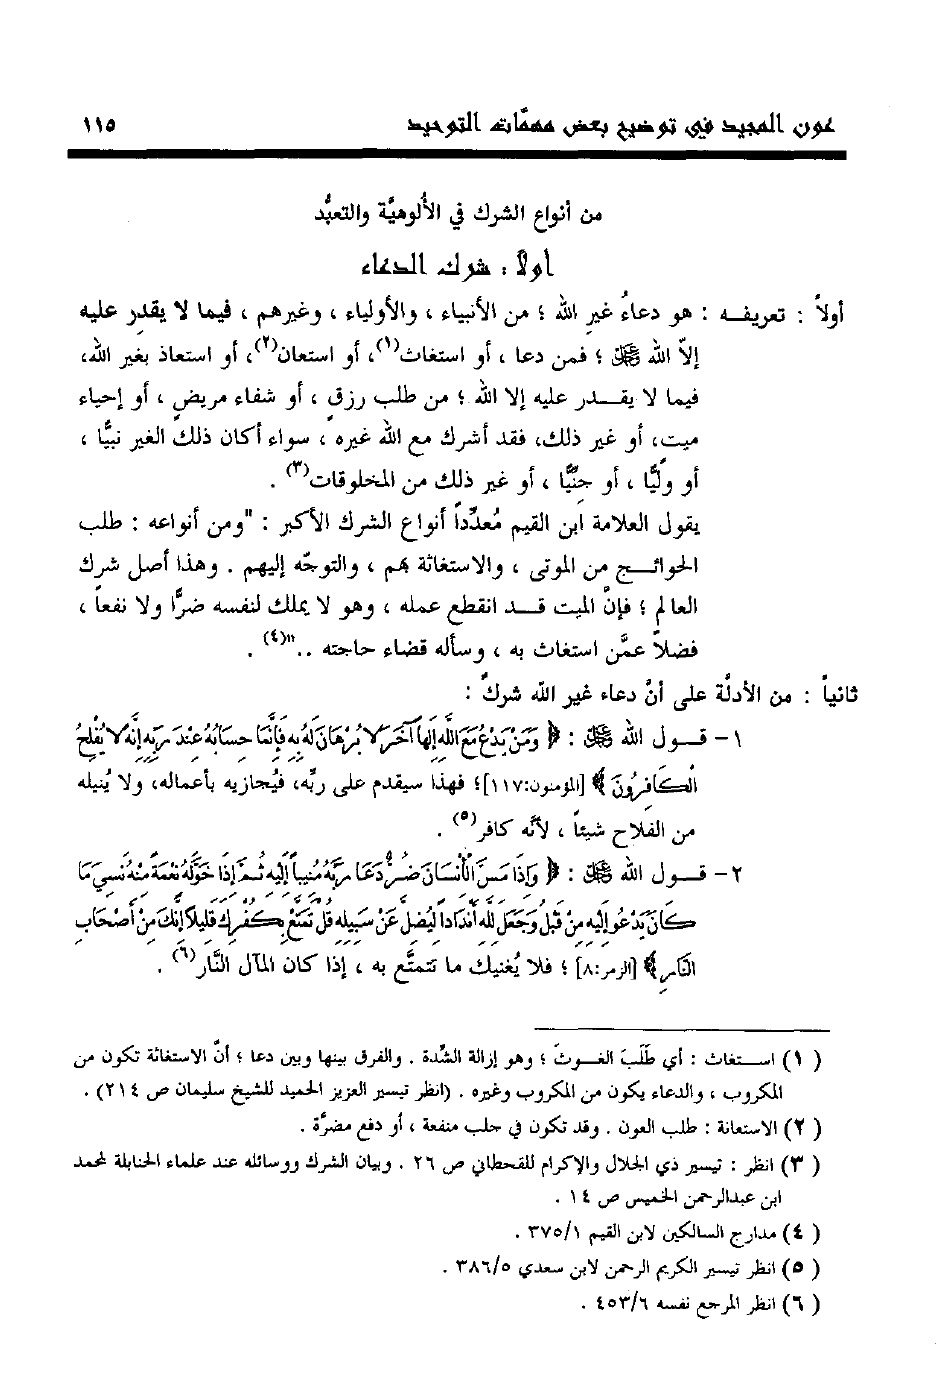 عون المجيد في توضيح بعض مهمَّات التوحيد ١١٥
من أنواع الشرك في الأُلوهيَّة والتعبُّد
أولاً : شرك الدعاء
أولاً : تعريفـه : هو دعاءُ غيرِ الله ؛ من الأنبياء ، والأولياء ، وغيرهم ، فيما لا يقدر عليه
إلاّ الله ﷻ ؛ فمن دعا ، أو استغاث(١)، أو استعان(٢)، أو استعاذ بغير الله،
فيما لا يقـدر عليه إلا الله ؛ من طلب رزق ، أو شفاء مريضٍ ، أو إحياء
ميت، أو غير ذلك، فقد أشرك مع الله غيره ، سواء أكان ذلك الغير نبيًّا ،
أو وليًّا ، أو جنيًّا ، أو غير ذلك من المخلوقات(٣) .
يقول العلامة ابن القيم مُعدِّداً أنواع الشرك الأكبر : "ومن أنواعه : طلب
الحوائـج من الموتى ، والاستغاثة بهم ، والتوجّه إليهم . وهذا أصل شرك
العالم ؛ فإنَّ الميت قـد انقطع عمله ، وهو لا يملك لنفسه ضرًّا ولا نفعاً ،
فضلاً عمَّن استغاث به ، وسأله قضاء حاجته .."(٤) .
ثانياً : من الأدلَّة على أنَّ دعاء غير الله شركٌ :
١- قـول الله ﷻ : ﴿ وَمَنْ يَدْعُ مَعَ اللَّهِ إِلَهاً آخَرَ لا بُرْهَانَ لَهُ بِهِ فَإِنَّمَا حِسَابُهُ عِنْدَ رَبِّهِ إِنَّهُ لا يُفْلِحُ
الْكَافِرُونَ ﴾ [المؤمنون:١١٧]؛ فهذا سيقدم على ربِّه، فيُجازيه بأعماله، ولا يُنيله
من الفلاح شيئاً ، لأنَّه كافر(٥) .
٢- قـول الله ﷻ : ﴿ وَإِذَا مَسَّ الْأِنْسَانَ ضُرٌّ دَعَا رَبَّهُ مُنِيباً إِلَيْهِ ثُمَّ إِذَا خَوَّلَهُ نِعْمَةً مِنْهُ نَسِيَ مَا
كَانَ يَدْعُو إِلَيْهِ مِنْ قَبْلُ وَجَعَلَ لِلَّهِ أَنْدَاداً لِيُضِلَّ عَنْ سَبِيلِهِ قُلْ تَمَتَّعْ بِكُفْرِكَ قَلِيلاً إِنَّكَ مِنْ أَصْحَابِ
النَّارِ ﴾ [الزمر:٨] ؛ فلا يُغنيك ما تتمتَّع به ، إذا كان المآل النَّار(٦) .
( ١) اسـتغاث : أي طَلَبَ الغـوثَ ؛ وهو إزالة الشِّدة . والفرق بينها وبين دعا ؛ أنَّ الاستغاثة تكون من
المكروب ، والدعاء يكون من المكروب وغيره . (انظر تيسير العزيز الحميد للشيخ سليمان ص ٢١٤) .
( ٢) الاستعانة : طلب العون . وقد تكون في جلب منفعة ، أو دفع مضرَّة .
( ٣) انظر : تيسير ذي الجلال والإكرام للقحطاني ص ٢٦ . وبيان الشرك ووسائله عند علماء الحنابلة لمحمد
ابن عبدالرحمن الخميس ص ١٤ .
( ٤) مدارج السالكين لابن القيم ٣٧٥/١ .
( ٥) انظر تيسير الكريم الرحمن لابن سعدي ٣٨٦/٥ .
( ٦) انظر المرجع نفسه ٤٥٣/٦ .